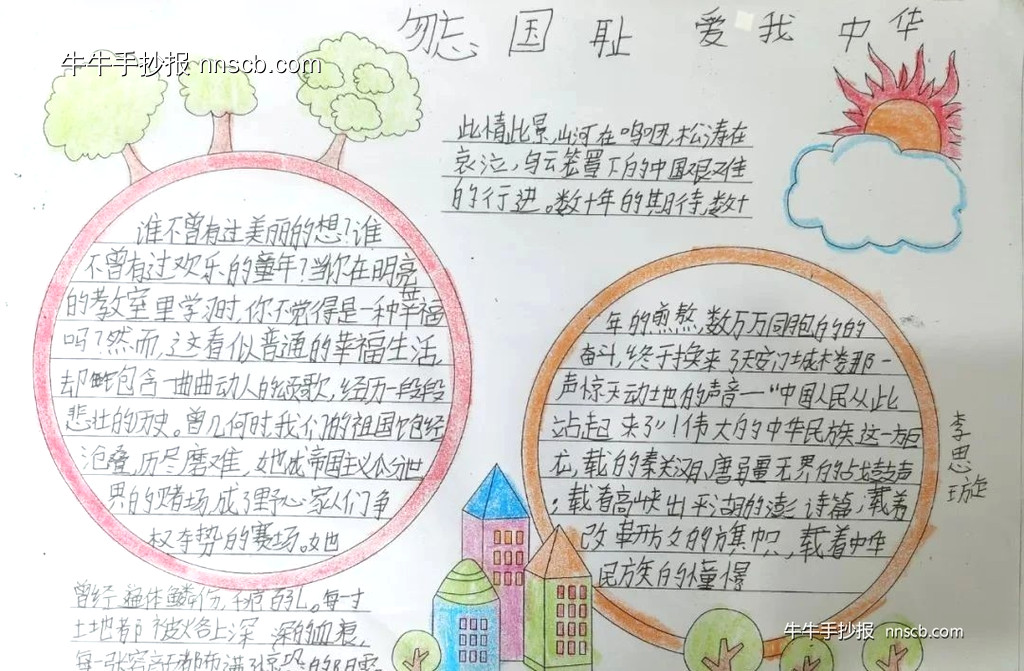 勿忘国耻 爱我中华
牛牛手抄报 nnscb.com
谁不曾有过美丽的想?谁
不曾有过欢乐的童年?当你在明亮
的教室里学习时,你不觉得是一种幸福
吗?然而,这看似普通的幸福生活,
却包含一曲曲动人的颂歌,经历一段段
悲壮的历史。曾几何时,我们的祖国饱经
沧叠,历尽磨难,她成帝国主义瓜分世
界的赌场,成了野心家人们争
权夺势的赛场。她
曾经遍体鳞伤,千疮百孔。每寸
土地都被烙上深深的血痕,
此情此景,山河在呜咽,松涛在
哀泣,乌云笼罩下的中国艰难
的行进。数十年的期待,数十
年的煎熬,数万万同胞的的
奋斗,终于换来了天安门城楼那一
声惊天动地的声音—“中国人民从此
站起来了”!伟大的中华民族这一方巨
龙,载的秦关汉月,唐 无界的 鼓声
;载着高峡出平湖的澎 诗篇;载着
改革开放的旗帜,载着中华
民族的憧憬
李思璇
牛牛手抄报 nnscb.com